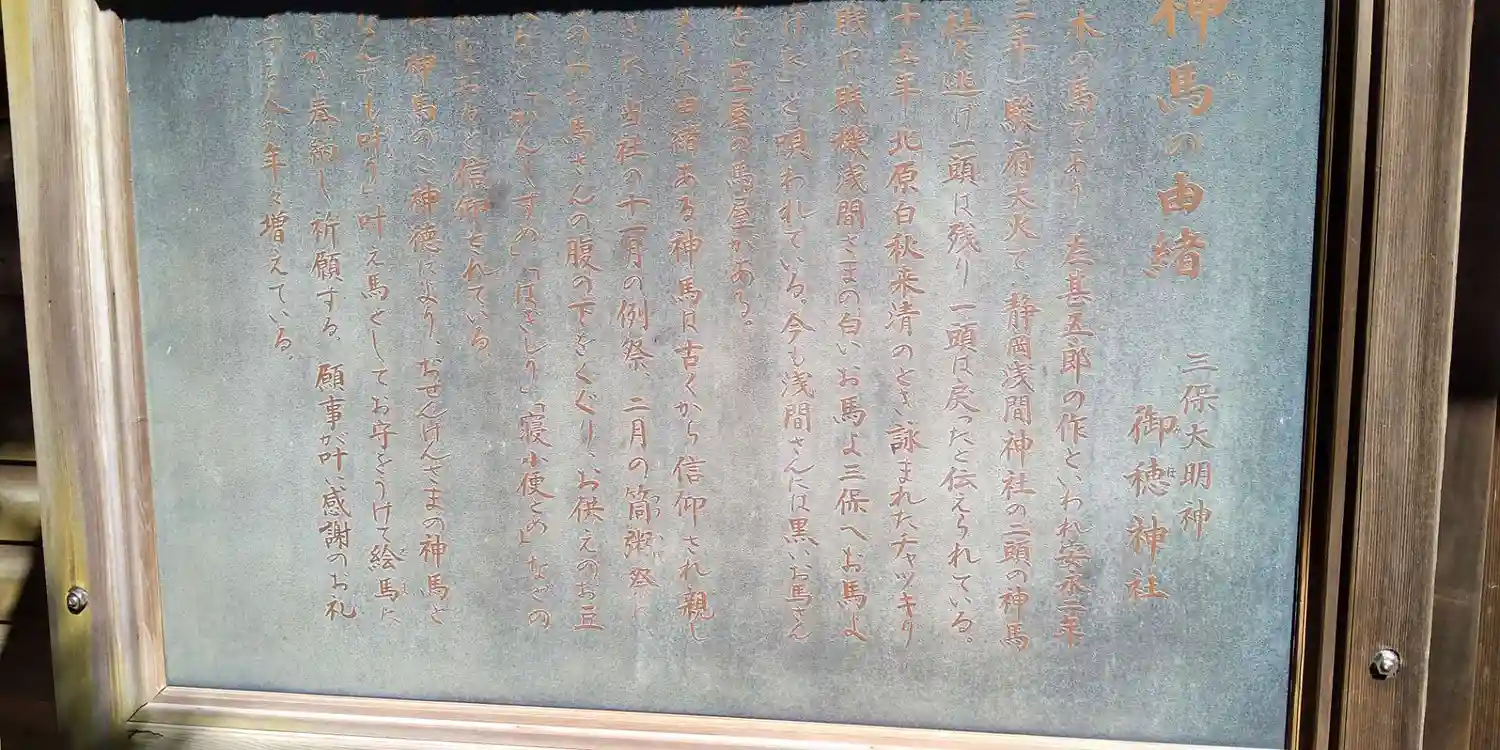 神馬の由緒
三保大明神
御穂神社
木の馬であり左甚五郎の作といわれ安永二年
三年)駿府大火で、静岡浅間神社の二頭の神馬
社に逃げ一頭は残り一頭は戻ったと伝えられている。
十五年北原白秋来清のとき詠まれたチャッキリ
賎や賎機浅間さまの白いお馬よ三保へお馬よ
げた」と唄われている。今も浅間さんには黒いお馬さん
と空屋の馬屋がある。
由緒ある神馬は古くから信仰され親し
当社の十一月の例祭、二月の筒粥祭に
お馬さんの腹の下をくぐり、お供えのお豆
「かんしずめ」「はぎしり」「寝小便とめ」などの
と信仰されている。
神馬のご神徳により、おせんげんさまの神馬と
なんでも叶う」叶え馬としてお守をうけて絵馬に
奉納し祈願する。願事が叶い感謝のお礼
する人が年々増えている。